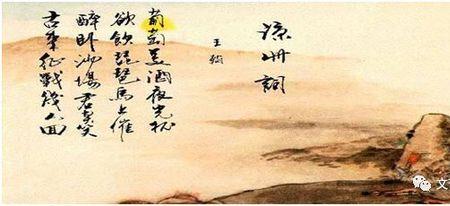 涼州詞
王翰
葡萄美酒夜光杯
欲飲琵琶馬上催
醉卧沙場君莫笑
古来征戰幾人回
文